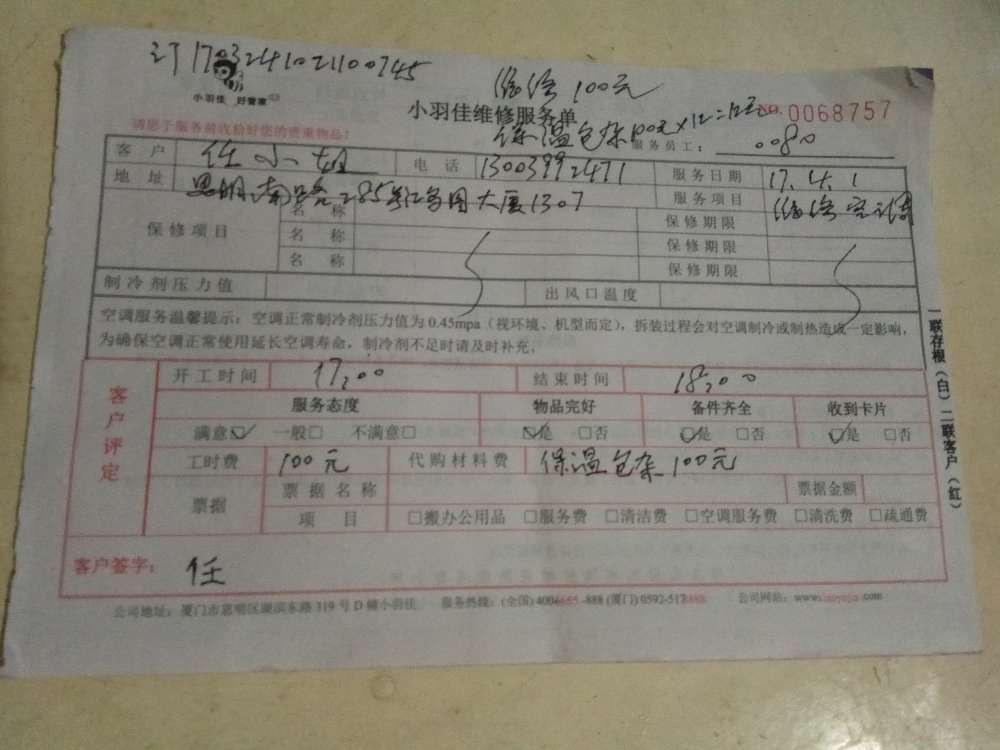 订170324102100745
维修100元
小羽佳 好管家
小羽佳维修服务单
NO. 0068757
保温包杂100元
请您于服务前收拾好您的贵重物品!
服务员工: 0080
客户 任小姐 电话 13003992471 服务日期 17.4.1
地址 思明南路285 大厦1307 服务项目 维修空调
保修项目 名称 保修期限
名称 保修期限
名称 保修期限
制冷剂压力值 出风口温度
空调服务温馨提示:空调正常制冷剂压力值为0.45mpa(视环境、机型而定),拆装过程会对空调制冷或制热造成一定影响,
为确保空调正常使用延长空调寿命,制冷剂不足时请及时补充。
客户评定
开工时间 17:00 结束时间 18:00
服务态度 物品完好 备件齐全 收到卡片
满意☑ 一般□ 不满意□ ☑是 □否 ☑是 □否 ☑是 □否
工时费 100元 代购材料费 保温包杂100元
票据 票据名称 票据金额
项目 □搬办公用品 □服务费 □清洁费 □空调服务费 □清洗费 □疏通费
客户签字: 任
公司地址:厦门市思明区 东路319号D幢小羽佳 服务热线:(全国) (厦门) 公司网站:
一联存根(白) 二联客户(红)